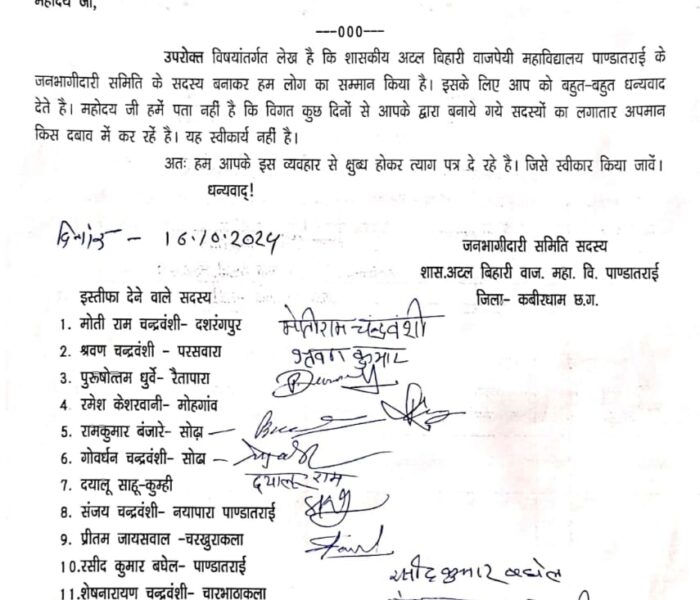 महोदय जी,
---000---
उपरोक्त विषयांतर्गत लेख है कि शासकीय अटल बिहारी वाजपेयी महाविद्यालय पाण्डातराई के
जनभागीदारी समिति के सदस्य बनाकर हम लोग का सम्मान किया है। इसके लिए आप को बहुत-बहुत धन्यवाद
देते है। महोदय जी हमें पता नहीं है कि विगत कुछ दिनों से आपके द्वारा बनाये गये सदस्यों का लगातार अपमान
किस दबाव में कर रहें है। यह स्वीकार्य नहीं है।
अतः हम आपके इस व्यवहार से क्षुब्ध होकर त्याग पत्र दे रहे है। जिसे स्वीकार किया जावें।
धन्यवाद्!
दिनांक - 16.10.2024
जनभागीदारी समिति सदस्य
शास.अटल बिहारी वाज. महा. वि. पाण्डातराई
जिला- कबीरधाम छ.ग.
इस्तीफा देने वाले सदस्य
1. मोती राम चन्द्रवंशी- दशरंगपुर मोतीराम चन्द्रवंशी
2. श्रवण चन्द्रवंशी - परसवारा श्रवण कुमार
3. पुरूषोत्तम धुर्वे- रैतापारा
4. रमेश केशरवानी- मोहगांव
5. रामकुमार बंजारे- सोढ़ा
6. गोवर्धन चन्द्रवंशी- सोढा
7. दयालू साहू-कुम्ही दयालू राम
8. संजय चन्द्रवंशी- नयापारा पाण्डातराई
9. प्रीतम जायसवाल -चरखुराकला
10.रसीद कुमार बघेल- पाण्डातराई रसीद कुमार बघेल
11.शेषनारायण चन्द्रवंशी- चारभाठाकला